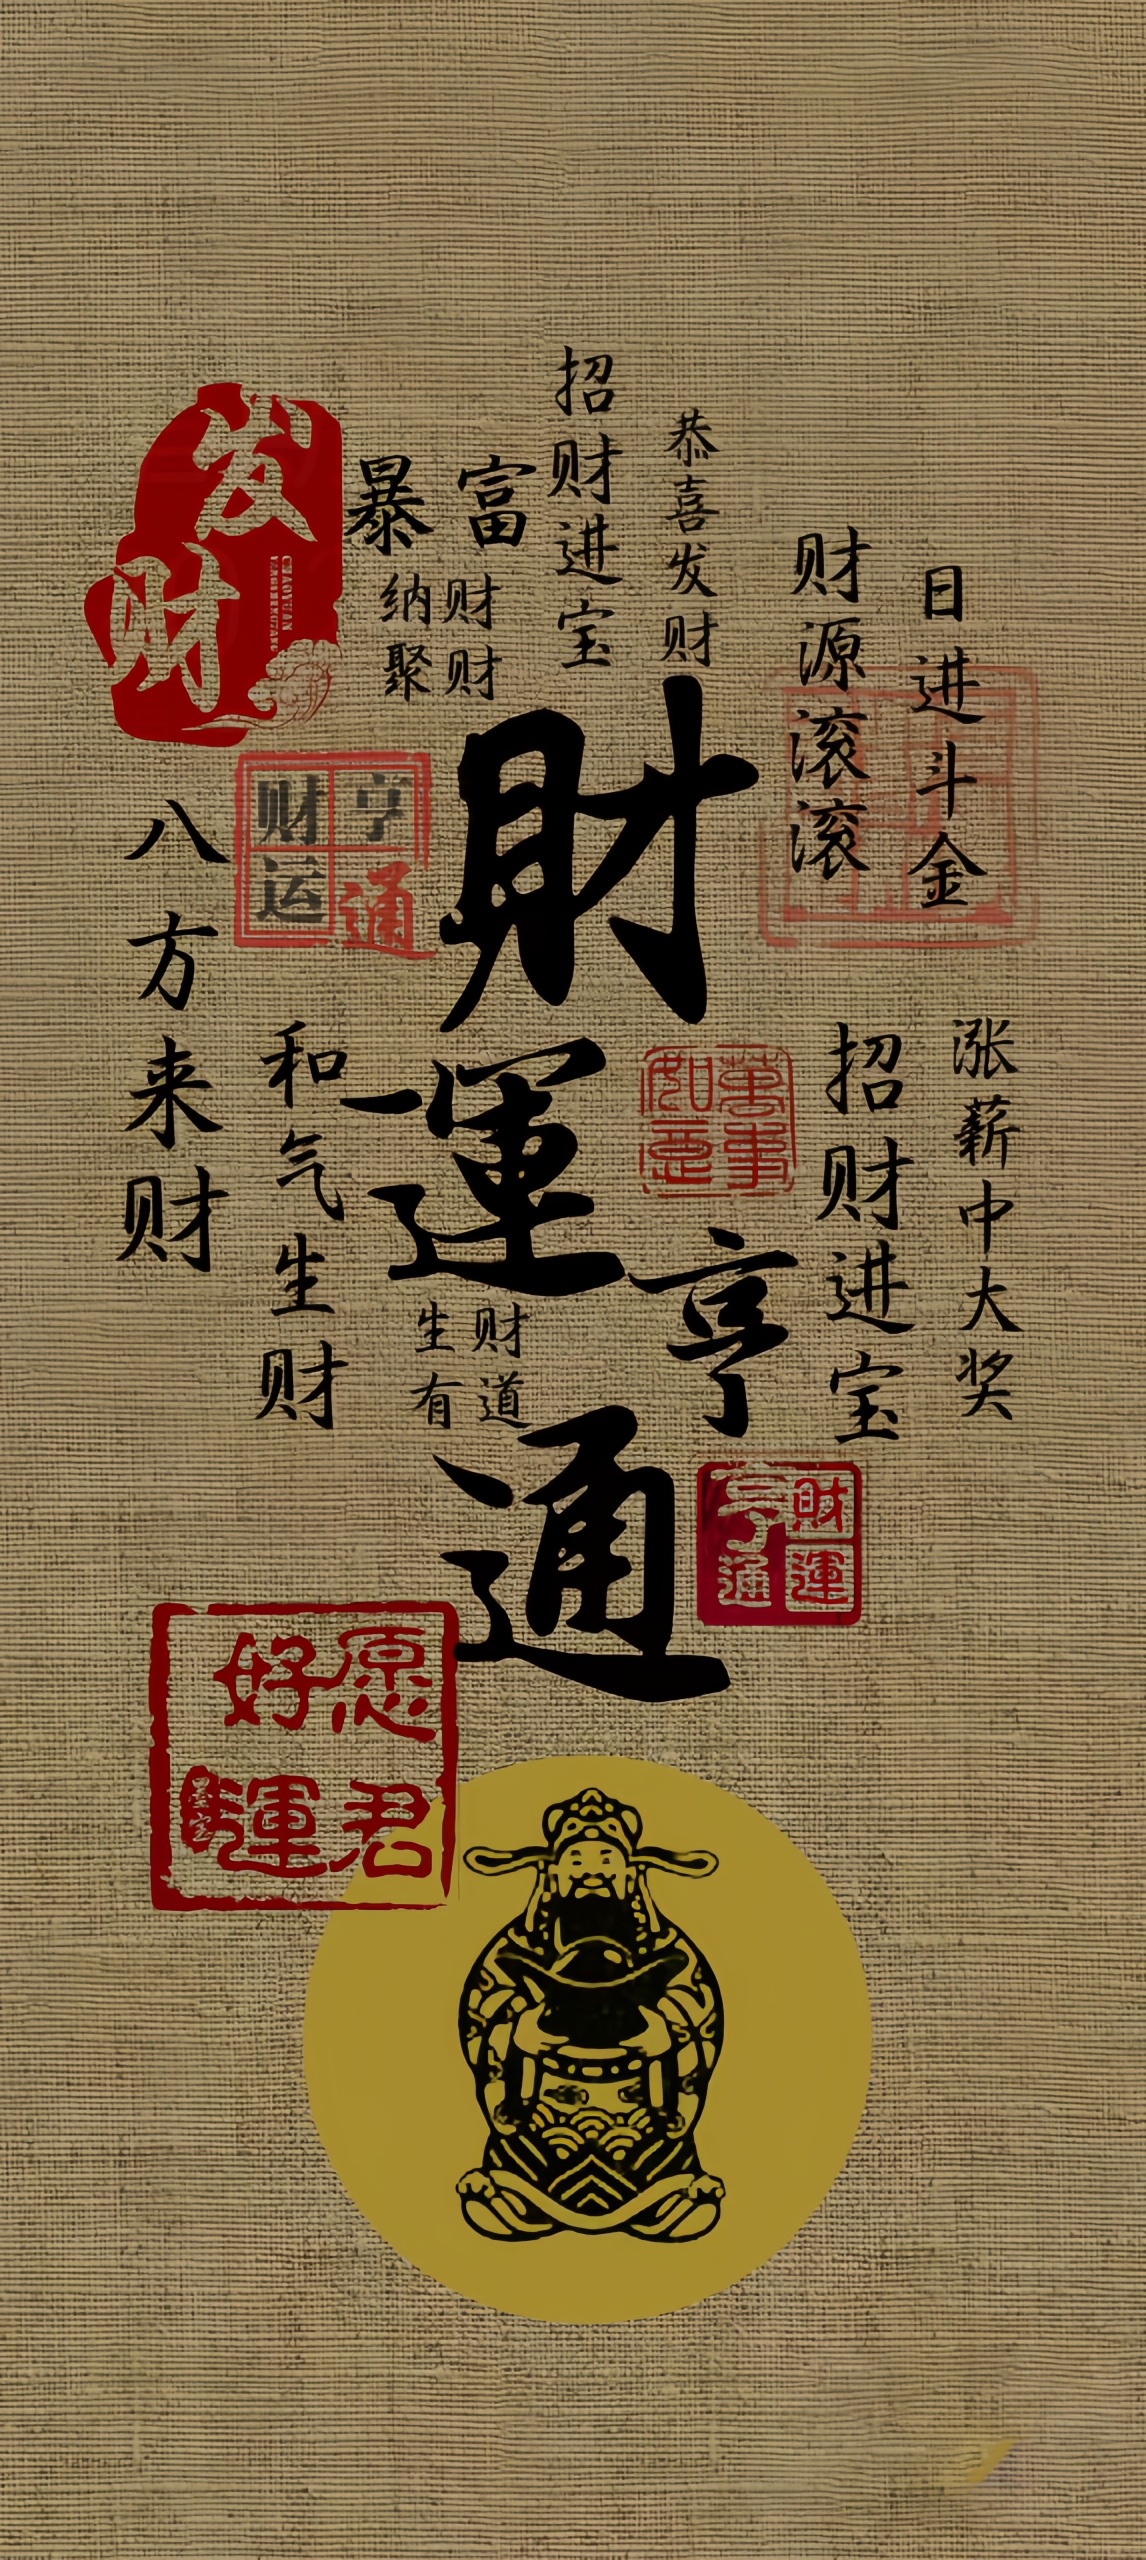 招财进宝
恭喜发财
发财
暴富
纳财
聚财
财源滚滚
日进斗金
财运
亨通
財運亨通
八方来财
和气生财
萬事如意
招财进宝
涨薪中大奖
生财
有道
財運
亨通
愿君
好運